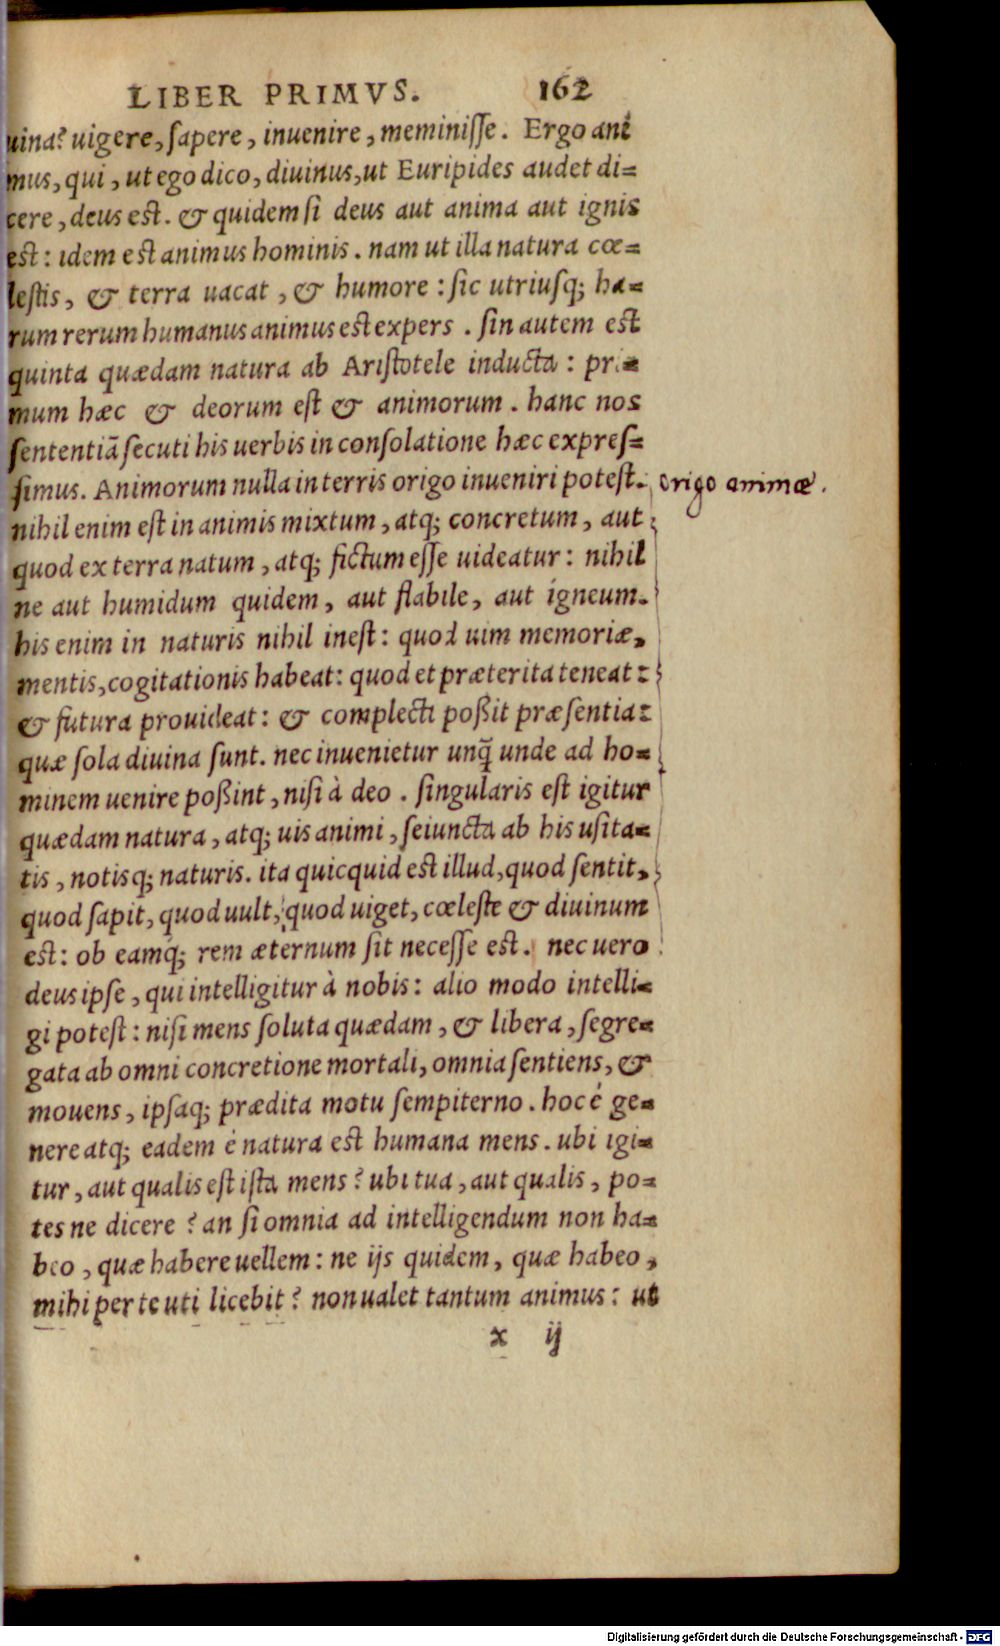 LIBER PRIMVS. 162
uina? uigere, ſapere, inuenire, meminiſſe. Ergo ani
mus, qui, ut ego dico, diuinus, ut Euripides audet di=
cere, deus est. & quidem ſi deus aut anima aut ignis
est: idem est animus hominis. nam ut illa natura cœ=
leſtis, & terra uacat, & humore: ſic utriuſq; ha=
rum rerum humanus animus est expers. ſin autem est
quinta quædam natura ab Ariſtotele inducta: pri=
mum hæc & deorum eſt & animorum. hanc nos
ſententiã ſecuti his uerbis in conſolatione hæc expreſ=
ſimus. Animorum nulla in terris origo inueniri poteſt. origo animæ.
nihil enim eſt in animis mixtum, atq; concretum, aut
quod ex terra natum, atq; fictum eſſe uideatur: nihil
ne aut humidum quidem, aut flabile, aut igneum.
his enim in naturis nihil ineſt: quod uim memoriæ,
mentis, cogitationis habeat: quod et præterita teneat:
& futura prouideat: & complecti poßit præſentia:
quæ ſola diuina ſunt. nec inuenietur unq̃ unde ad ho=
minem uenire poßint, niſi à deo. ſingularis eſt igitur
quædam natura, atq; uis animi, ſeiuncta ab his uſita=
tis, notisq; naturis. ita quicquid est illud, quod ſentit,
quod ſapit, quod uult, quod uiget, cœleſte & diuinum
est: ob eamq́; rem æternum ſit neceſſe est. nec uero
deus ipſe, qui intelligitur à nobis: alio modo intelli=
gi poteſt: niſi mens ſoluta quædam, & libera, ſegre=
gata ab omni concretione mortali, omnia ſentiens, &
mouens, ipſaq; prædita motu ſempiterno. hoc é ge=
nere atq; eadem é natura est humana mens. ubi igi=
tur, aut qualis eſt iſta mens? ubi tua, aut qualis, po=
tes ne dicere? an ſi omnia ad intelligendum non ha=
beo, quæ habere uellem: ne ijs quidem, quæ habeo,
mihi per te uti licebit? non ualet tantum animus: ut
x ij
Digitalisierung gefördert durch die Deutsche Forschungsgemeinschaft - DFG